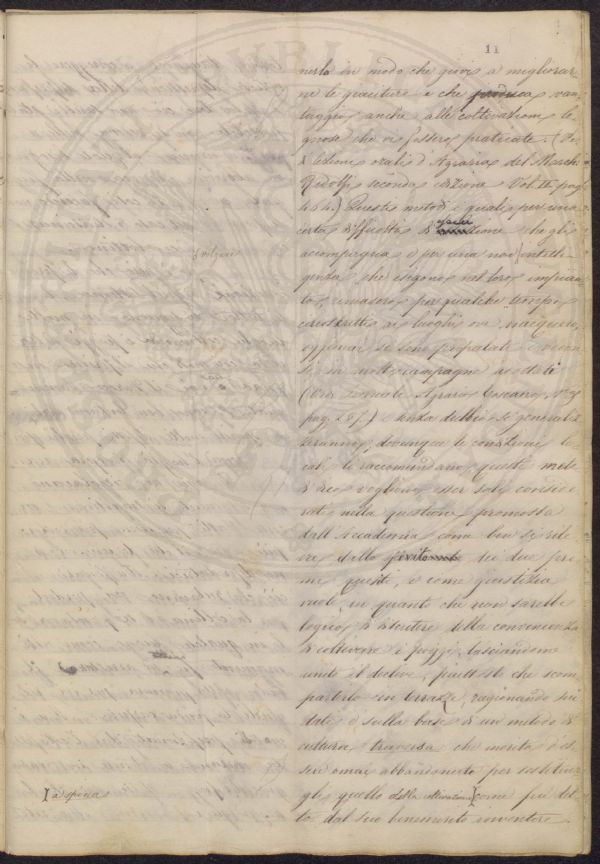 11
nerla in modo che giovi a migliorar
ne le giaciture e che produca van
taggio anche alle coltivazioni le
gnose che vi fossero praticate. (Ve.
Lezioni orali d'Agraria del March.
Ridolfi seconda edizione Vol. II pag
454.) Questi metodi i quali per una
certa difficoltà d' che gli
accompagna e per una non intelli
genza che esigono nel loro impian
to, rimasero per qualche tempo
circoscritti ai luoghi ove nacquero,
oggimai si sono propalati e
si in molte campagne
(Ved. Giornale Agrario Toscano,
pag. 287.) e senza dubbio si generaliz
zeranno, dovunque le condizioni lo
cali le raccomandano, questi metodi
dico vogliono esser soli conside
rati nella questione promossa
dall'Accademia come ben si rile
va dallo dei due pri
mi quesiti, e come giustizia
vuole, in quanto che non sarebbe
logico il discutere della convenienza
di coltivare i poggi, lasciandone
unito il declive, piuttosto che scom
partirlo in terrazze, ragionando sui
dati e sulla base di un metodo di
cultura traversa che merita d'es
sere omai abbandonato per sostituir
gli quello della coltivazione come fu det
to dal suo benemerito inventore
[a spina